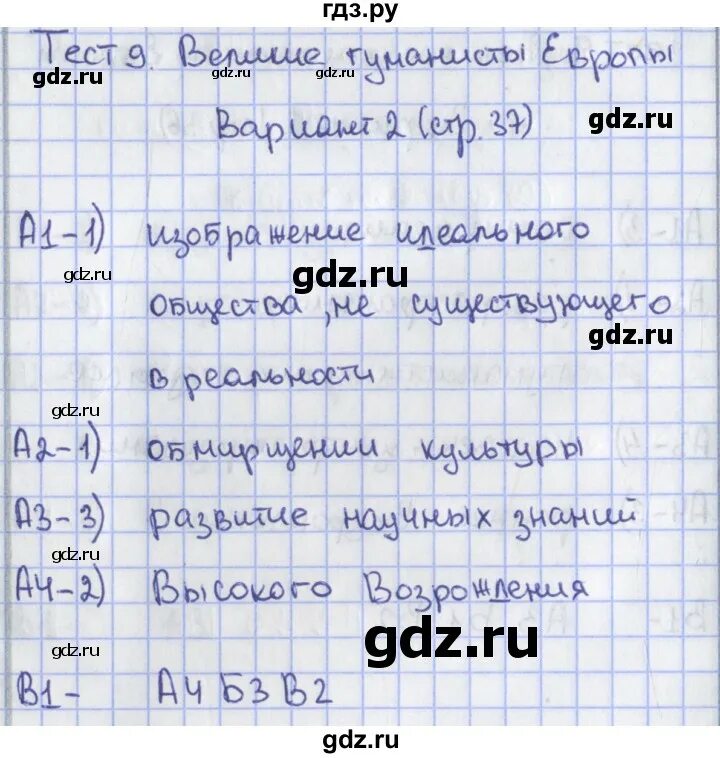 гдз.ру
Тест 9. Великие гуманисты Европы
gdz.ru gdz.ru gdz.ru
Вариант 2 (стр. 37)
gdz.ru
А1-1) изображение идеального
gdz.ru gdz.ru
общества, не существующего
gdz.ru
в реальности
gdz.ru
А2-1) обмирщении культуры
А3-3) развитие научных знаний
gdz.ru
А4-2) Высокого Возрождения
gdz.ru gdz.ru
В1- А4 Б3 В2
gdz.ru